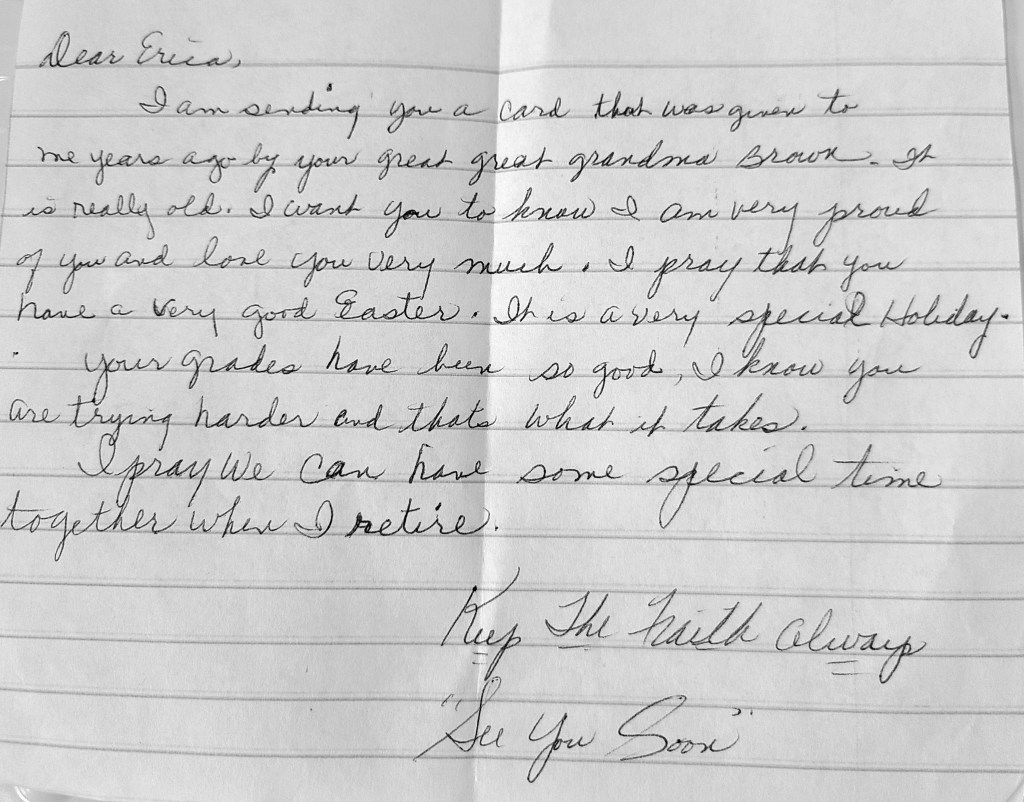 Dear Erica,
I am sending you a card that was given to
me years ago by your great great grandma Brown. It
is really old. I want you to know I am very proud
of you and love you very much. I pray that you
have a very good Easter. It is a very special Holiday.
Your grades have been so good, I know you
are trying harder and thats what it takes.
I pray we can have some special time
together when I retire.
Keep The Faith Always
"See You Soon"